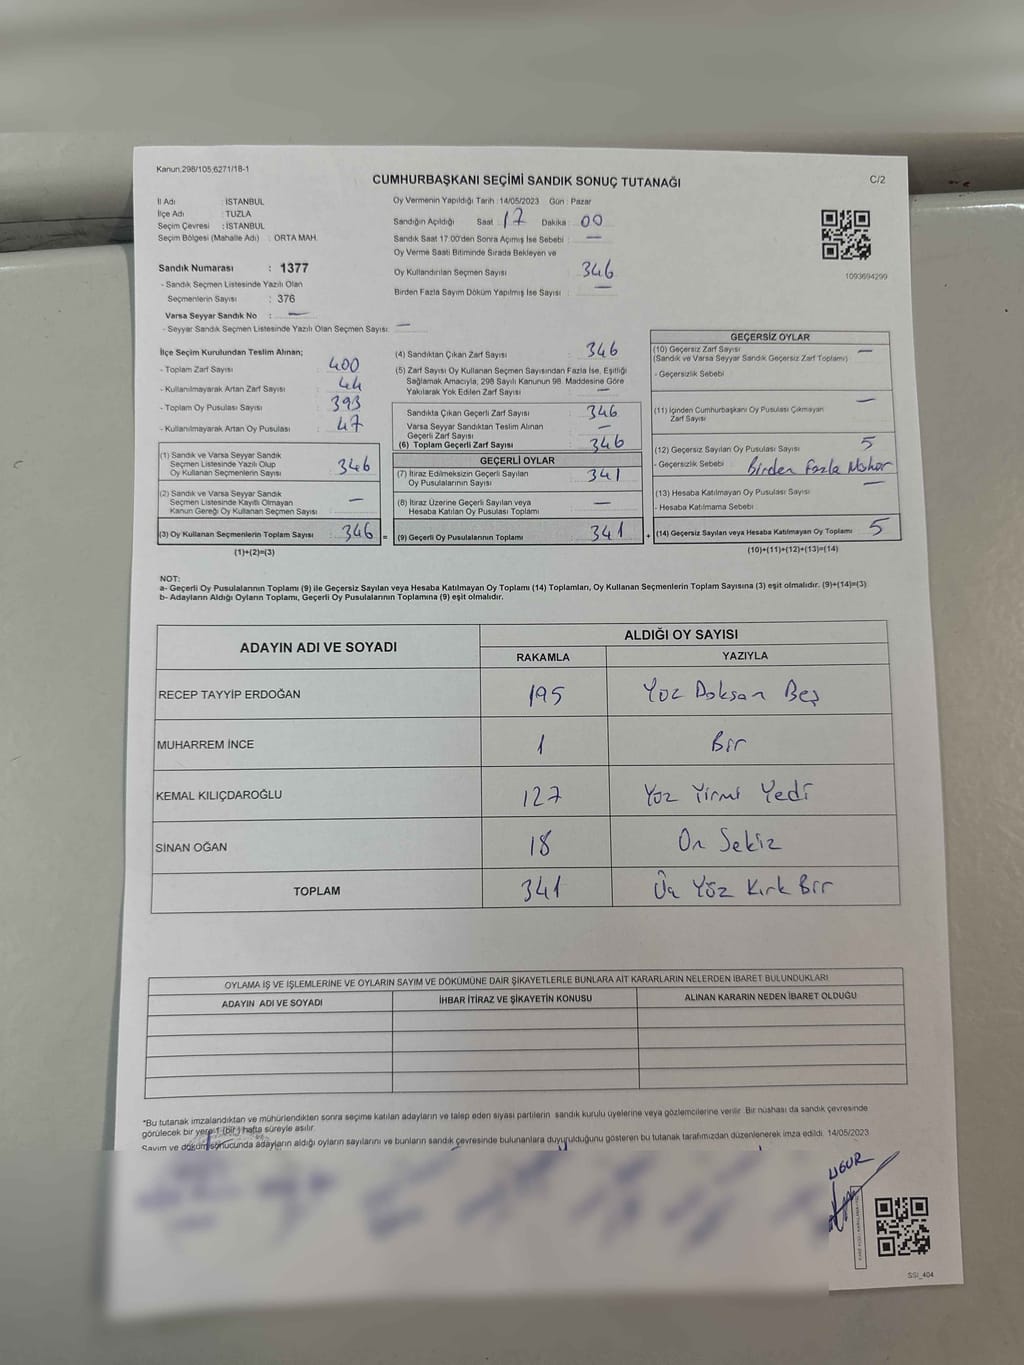 Kanun.298/105,6271/18-1
CUMHURBAŞKANI SEÇİMİ SANDIK SONUÇ TUTANAĞI
C/2
İl Adı : İSTANBUL
İlçe Adı : TUZLA
Seçim Çevresi : İSTANBUL
Seçim Bölgesi (Mahalle Adı) : ORTA MAH.
Sandık Numarası : 1377
- Sandık Seçmen Listesinde Yazılı Olan
Seçmenlerin Sayısı : 376
Varsa Seyyar Sandık No : —
- Seyyar Sandık Seçmen Listesinde Yazılı Olan Seçmen Sayısı: —
Oy Vermenin Yapıldığı Tarih :14/05/2023 Gün : Pazar
Sandığın Açıldığı Saat : 17 Dakika : 00
Sandık Saat 17:00'den Sonra Açımış İse Sebebi : —
Oy Verme Saati Bitiminde Sırada Bekleyen ve
Oy Kullandırılan Seçmen Sayısı : 346
Birden Fazla Sayım Döküm Yapılmış İse Sayısı : —
1093694299
İlçe Seçim Kurulundan Teslim Alınan;
- Toplam Zarf Sayısı : 400
- Kullanılmayarak Artan Zarf Sayısı : 44
- Toplam Oy Pusulası Sayısı : 393
- Kullanılmayarak Artan Oy Pusulası : 47
(1) Sandık ve Varsa Seyyar Sandık
Seçmen Listesinde Yazılı Olup
Oy Kullanan Seçmenlerin Sayısı : 346
(2) Sandık ve Varsa Seyyar Sandık
Seçmen Listesinde Kayıtlı Olmayan
Kanun Gereği Oy Kullanan Seçmen Sayısı : —
(3) Oy Kullanan Seçmenlerin Toplam Sayısı : 346 =
(1)+(2)=(3)
(4) Sandıktan Çıkan Zarf Sayısı : 346
(5) Zarf Sayısı Oy Kullanan Seçmen Sayısından Fazla İse, Eşitliği
Sağlamak Amacıyla, 298 Sayılı Kanunun 98. Maddesine Göre
Yakılarak Yok Edilen Zarf Sayısı : —
Sandıkta Çıkan Geçerli Zarf Sayısı : 346
Varsa Seyyar Sandıktan Teslim Alınan
Geçerli Zarf Sayısı : —
(6) Toplam Geçerli Zarf Sayısı : 346
GEÇERLİ OYLAR
(7) İtiraz Edilmeksizin Geçerli Sayılan
Oy Pusulalarının Sayısı : 341
(8) İtiraz Üzerine Geçerli Sayılan veya
Hesaba Katılan Oy Pusulası Toplamı : —
(9) Geçerli Oy Pusulalarının Toplamı : 341 +
GEÇERSİZ OYLAR
(10) Geçersiz Zarf Sayısı : —
(Sandık ve Varsa Seyyar Sandık Geçersiz Zarf Toplamı)
- Geçersizlik Sebebi :
(11) İçinden Cumhurbaşkanı Oy Pusulası Çıkmayan
Zarf Sayısı : —
(12) Geçersiz Sayılan Oy Pusulası Sayısı : 5
- Geçersizlik Sebebi : Birden Fazla Mühür
(13) Hesaba Katılmayan Oy Pusulası Sayısı : —
- Hesaba Katılmama Sebebi :
(14) Geçersiz Sayılan veya Hesaba Katılmayan Oy Toplamı : 5
(10)+(11)+(12)+(13)=(14)
NOT:
a- Geçerli Oy Pusulalarının Toplamı (9) ile Geçersiz Sayılan veya Hesaba Katılmayan Oy Toplamı (14) Toplamları, Oy Kullanan Seçmenlerin Toplam Sayısına (3) eşit olmalıdır. (9)+(14)=(3)
b- Adayların Aldığı Oyların Toplamı, Geçerli Oy Pusulalarının Toplamına (9) eşit olmalıdır.
ADAYIN ADI VE SOYADI
ALDIĞI OY SAYISI
RAKAMLA YAZIYLA
RECEP TAYYİP ERDOĞAN 195 Yüz Doksan Beş
MUHARREM İNCE 1 Bir
KEMAL KILIÇDAROĞLU 127 Yüz Yirmi Yedi
SİNAN OĞAN 18 On Sekiz
TOPLAM 341 Üç Yüz Kırk Bir
OYLAMA İŞ VE İŞLEMLERİNE VE OYLARIN SAYIM VE DÖKÜMÜNE DAİR ŞİKAYETLERLE BUNLARA AİT KARARLARIN NELERDEN İBARET BULUNDUKLARI
ADAYIN ADI VE SOYADI İHBAR İTİRAZ VE ŞİKAYETİN KONUSU ALINAN KARARIN NEDEN İBARET OLDUĞU
*Bu tutanak imzalandıktan ve mühürlendikten sonra seçime katılan adayların ve talep eden siyasi partilerin sandık kurulu üyelerine veya gözlemcilerine verilir. Bir nüshası da sandık çevresinde
görülecek bir yere 1 (bir) hafta süreyle asılır.
Sayım ve döküm sonucunda adayların aldığı oyların sayılarını ve bunların sandık çevresinde bulunanlara duyurulduğunu gösteren bu tutanak tarafımızdan düzenlenerek imza edildi. 14/05/2023
UĞUR
SSİ_404